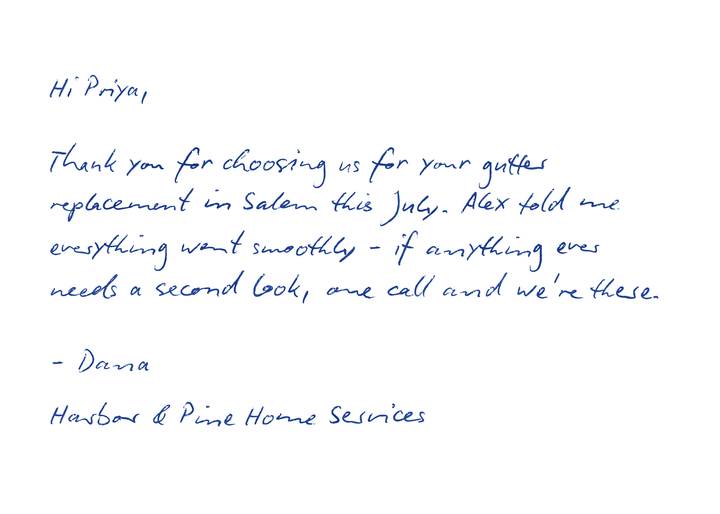 Hi Priya,
Thank you for choosing us for your gutter
replacement in Salem this July. Alex told me
everything went smoothly - if anything ever
needs a second look, one call and we're there.
- Dana
Harbor & Pine Home Services